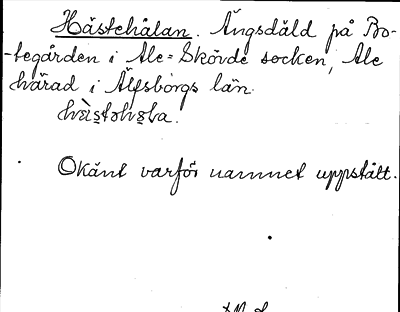 Hästehålan. Ängsdåld på Bo-
-tegården i Ale-Skövde socken, Ale
härad i Älfsborgs län.
Okänt varför namnet uppstått.